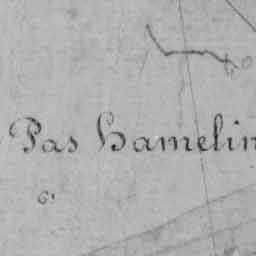 Pas Hamelin
6.